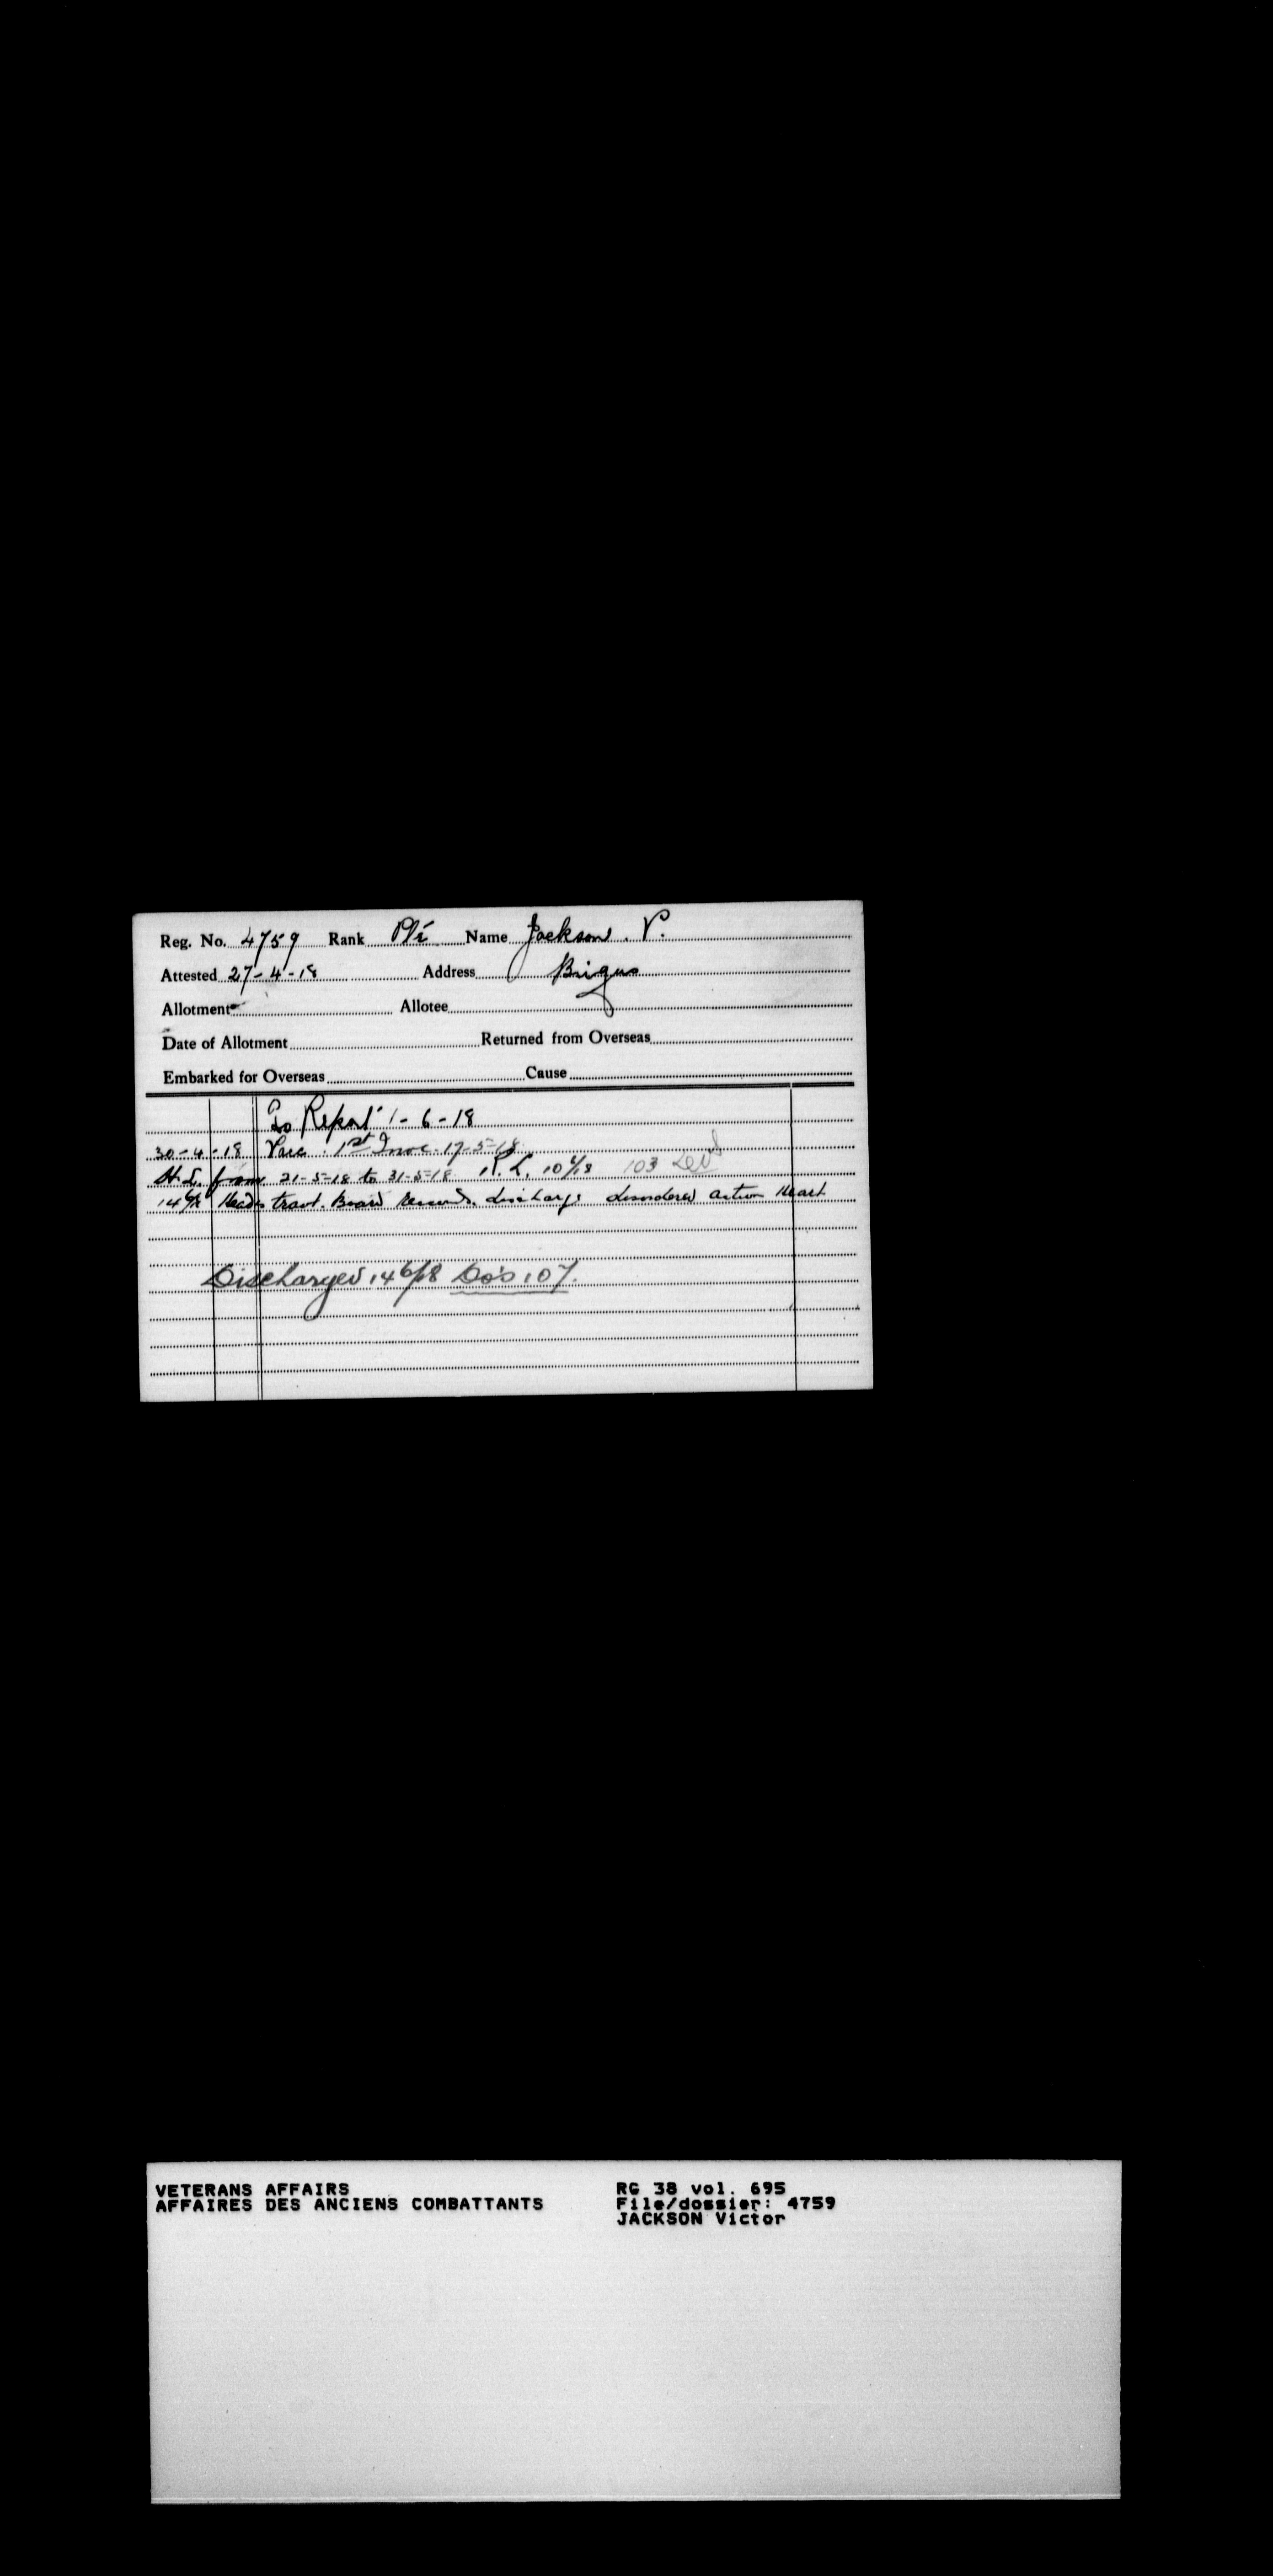 Reg. No. 4759 Rank Pte Name Jackson. V.
Attested 27-4-18 Address Brigus
Allotment Allotee
Date of Allotment Returned from Overseas
Embarked for Overseas Cause
To Report 1-6-18
30-4-18 Vacc. 1st Inoc. 17-5-18
H.L. from 21-5-18 to 31-5-18 R.L. 10/6/18 103
14/6/18 trav. Board discharge disordered action Heart
Discharged 14/6/18 107.
VETERANS AFFAIRS
AFFAIRES DES ANCIENS COMBATTANTS
RG 38 vol. 695
File/dossier: 4759
JACKSON Victor